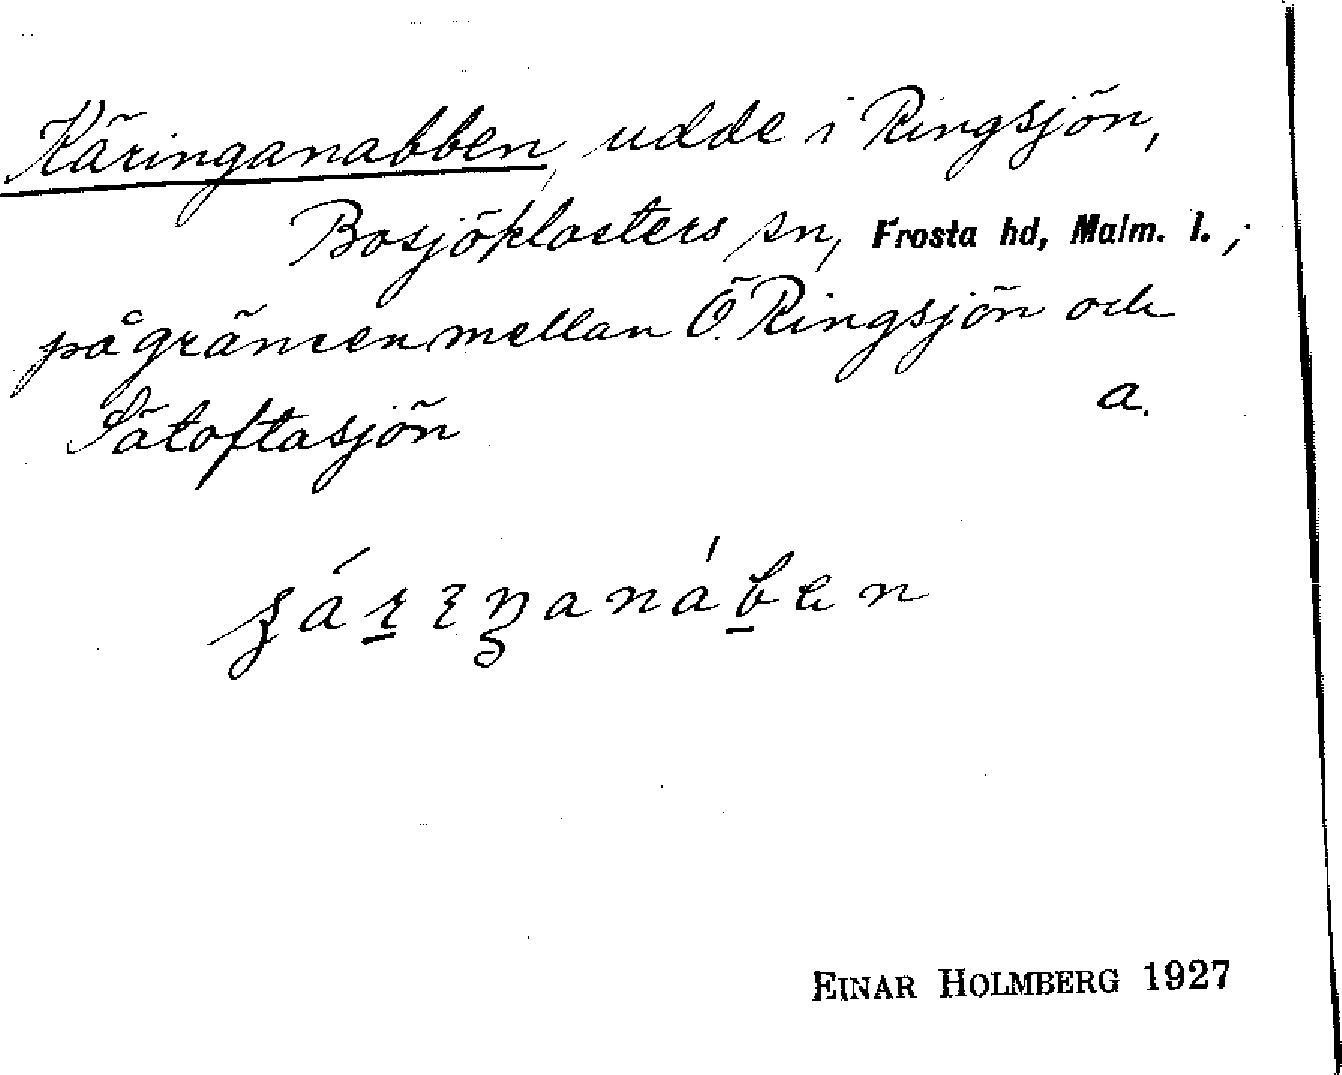 Käringanabben, udde i Ringsjön,
Bosjöklosters sn, Frosta hd, Malm. l.;
på gränsen mellan Ö. Ringsjön och
Sätoftasjön
a.
EINAR HOLMBERG 1927